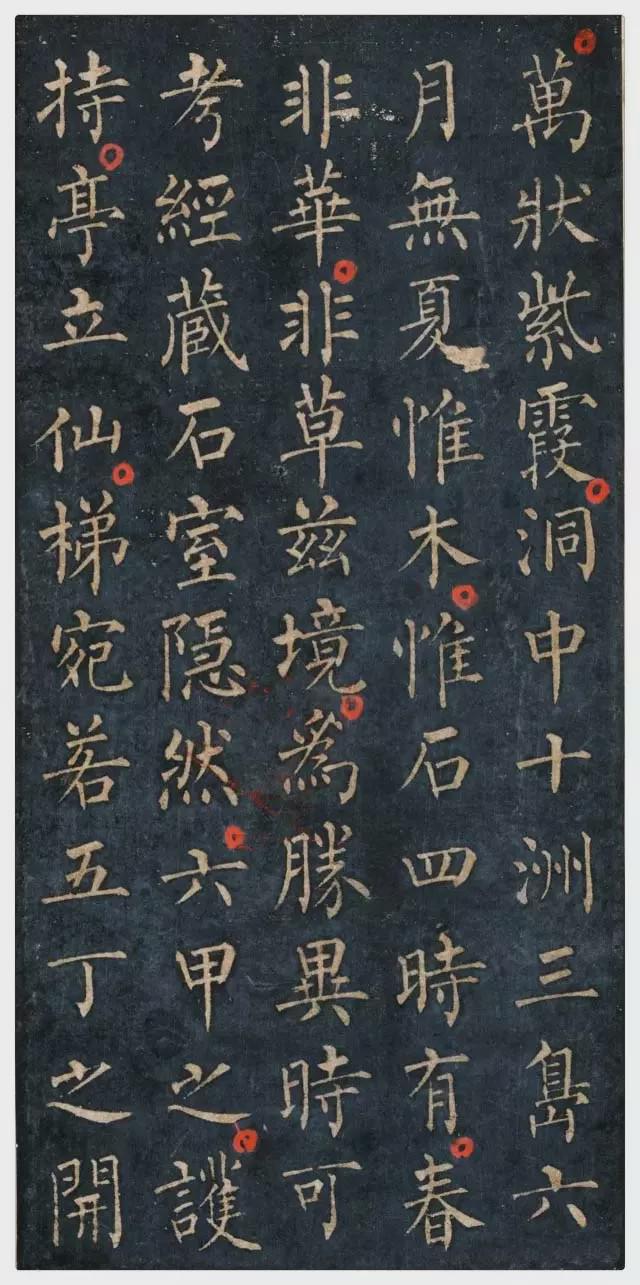 萬狀紫霞洞中十洲三島六
月無夏惟木惟石四時有春
非華非草茲境爲勝異時可
考經藏石室隱然六甲之護
持亭立仙梯宛若五丁之開